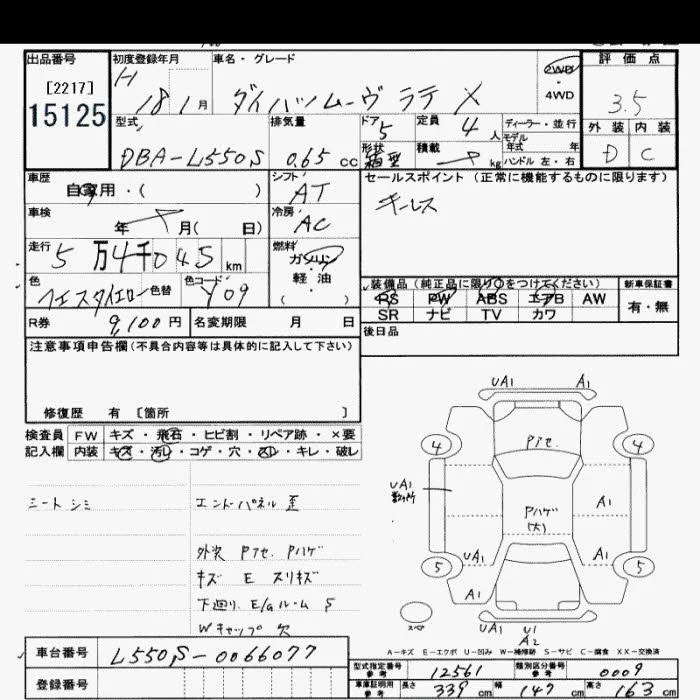 出品番号 初度登録年月 車名・グレード 2WD・4WD 評価点
[2217]
15125
H 18 1月 ダイハツムーヴ ラテ X 3.5
外装 内装
D C
型式 排気量 ドア 定員 ディーラー・並行
DBA-L550S 0.65 cc 5 4人 モデル年式 年
形状 積載 kg ハンドル 左・右
箱型
車歴 シフト セールスポイント (正常に機能するものに限ります)
自家用・( ) AT キーレス
車検 冷房
年 月( 日) AC
走行 燃料
5万4千045km ガソリン・軽油・( )
色 色替 色コード 装備品 (純正品に限り○をつけてください) 新車保証書
イエスタイエロー Y09 RS PW ABS エアB AW 有・無
SR ナビ TV カワ
R券 9,100円 名変期限 月 日 後日品
注意事項申告欄(不具合内容等は具体的に記入して下さい)
修復歴 有 [箇所 ]
検査員 FW キズ・飛石・ヒビ割・リペア跡・×要
記入欄 内装 キズ・汚レ・コゲ・穴・スレ・キレ・破レ
シートシミ エンドパネル歪
外装 Pアセ、Pハゲ
キズ E スリキズ
下廻り、E/Gルーム S
Wキャップ 欠
UA1 A1
4 4
Pアセ
UA1
Pハゲ
(大)
A1
UA1 A1
5 5
A1
スペア
UA1 U1
A2
A-キズ E-エクボ U-凹み W-補修跡 S-サビ C-腐食 XX-交換済
車台番号 L550S-0066077
登録番号
型式指定番号参考 12561 類別区分番号参考 0009
車庫証明用参考 長さ 339cm 幅 147cm 高さ 163cm